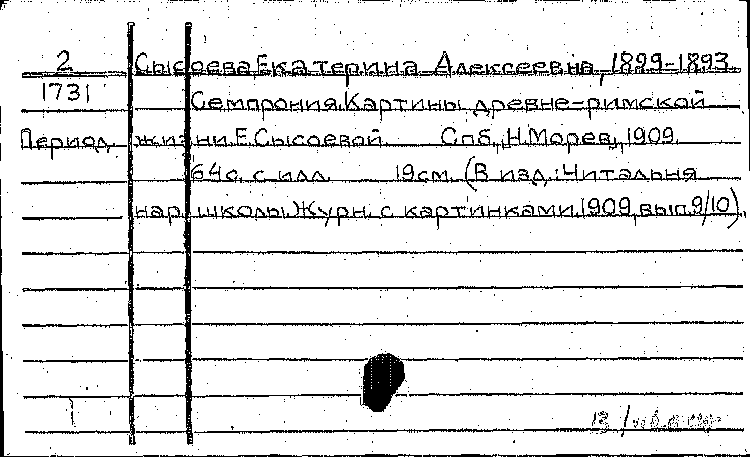 2 Сысоева, Екатерина Алексеевна, 1829-1893.
1731 Семпрония. Картины древне-римской
Период. жизни Е. Сысоевой. Спб., Н. Морев, 1909.
64 с. с илл. 19 см. (В изд.: Читальня
нар. школы. Журн. с картинками. 1909, вып. 9/10).